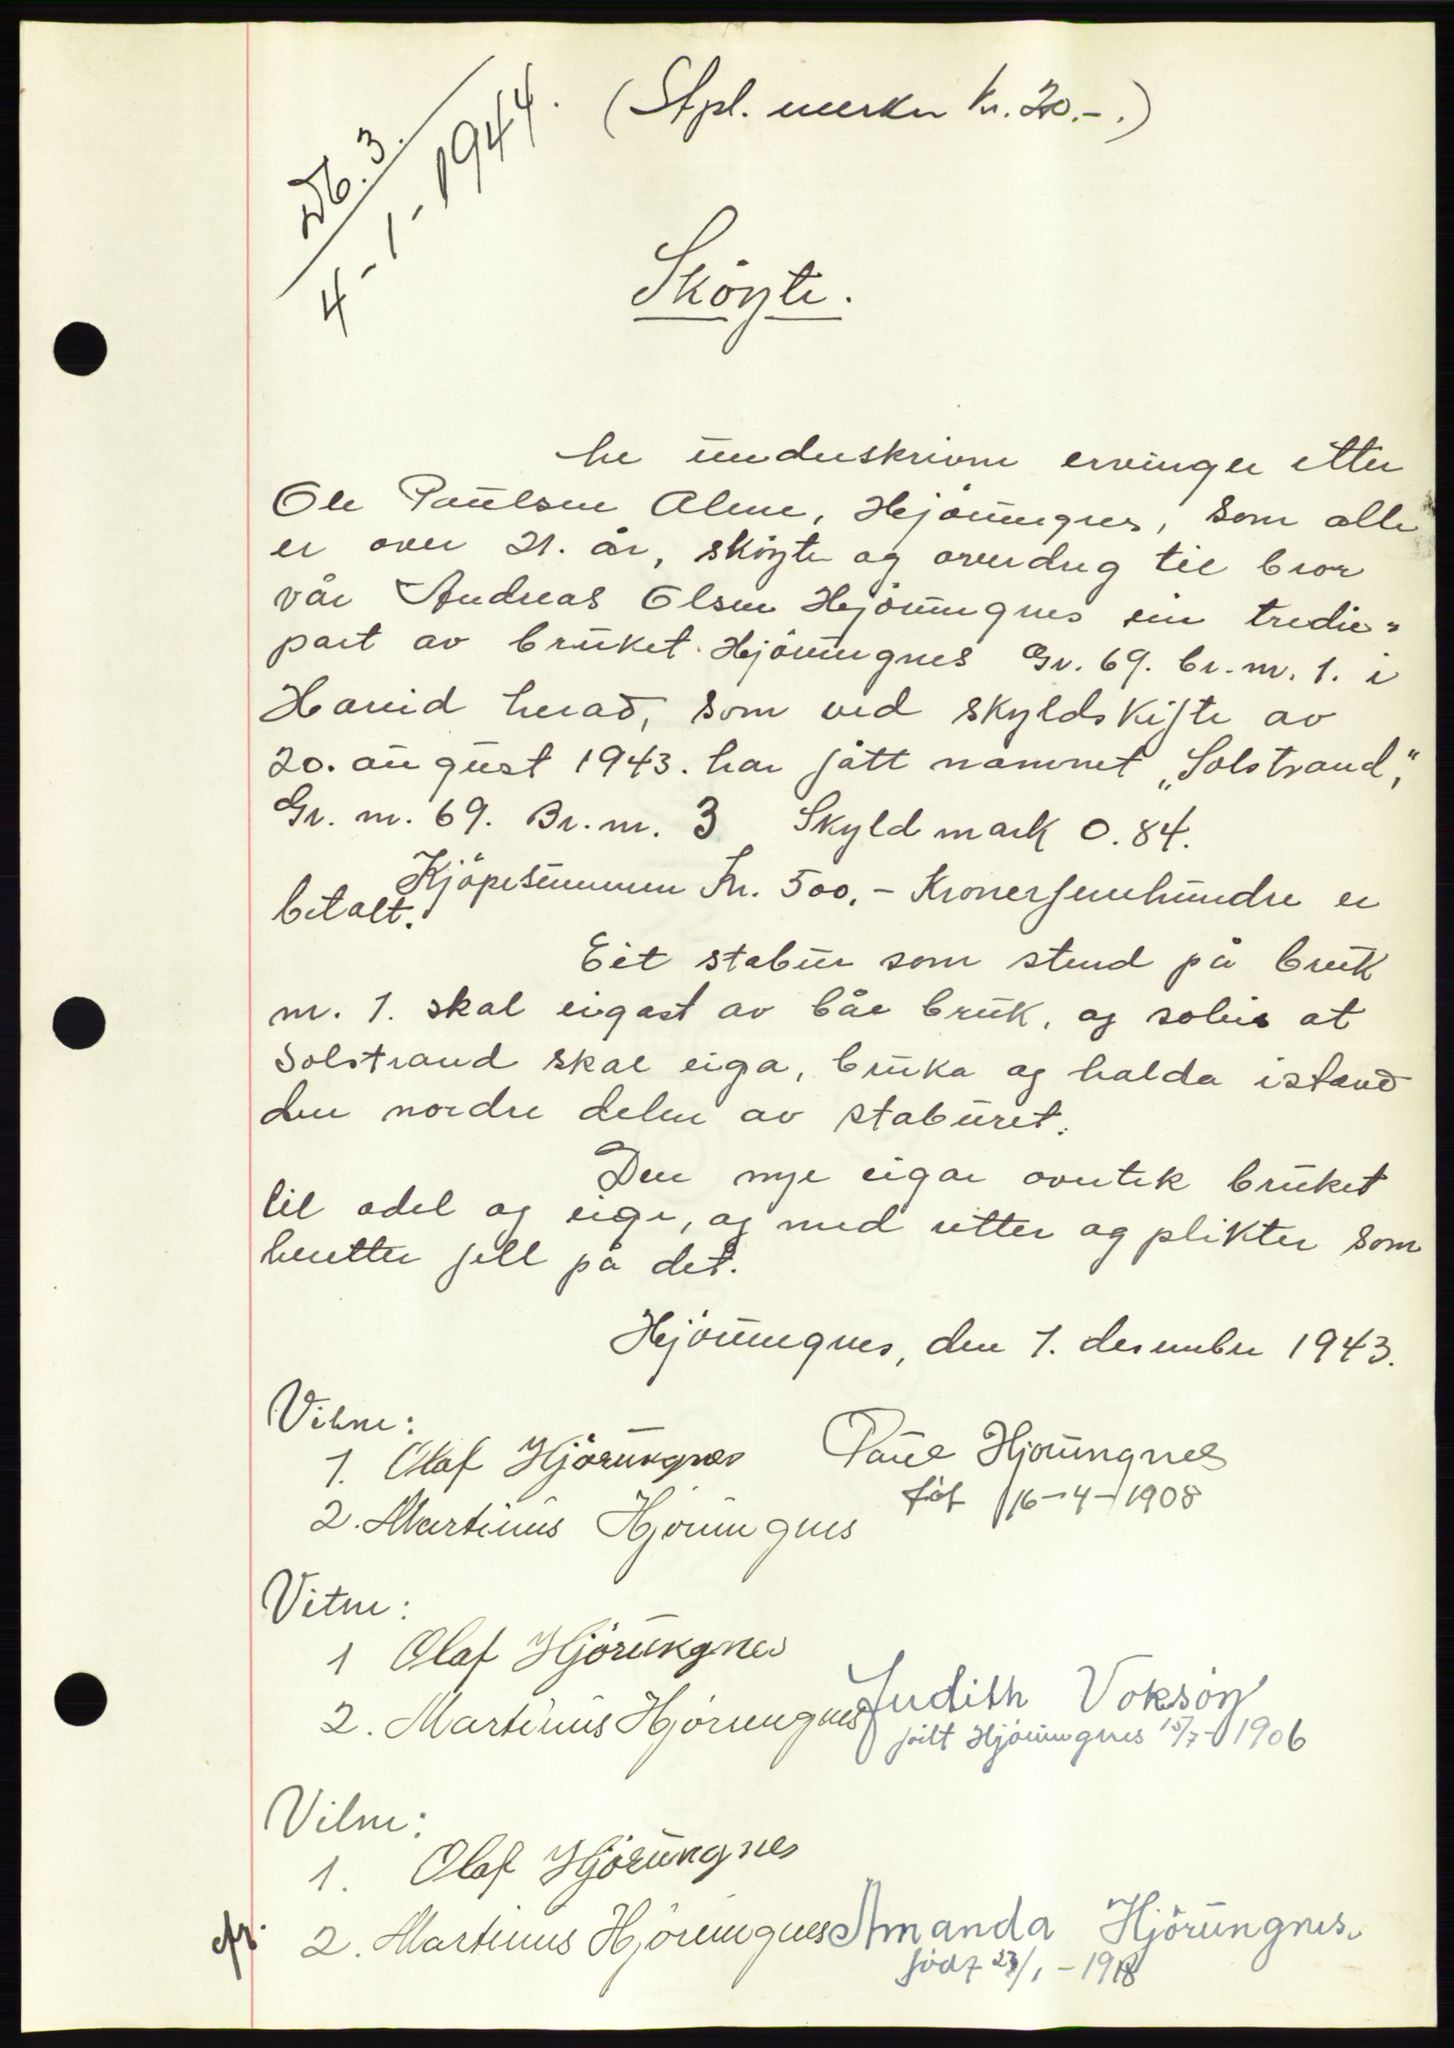 Db. 3.
4-1-1944.
(Stpl. merker kr. 20.-.)
Sköyte.
Me underskrivne ervinger etter
Ole Paulsen Alme, Hjörungnes, som alle
er over 21. år, sköyte og overdreg til bror
vår Andreas Olsen Hjörungnes ein tredie=
part av bruket Hjörungnes Gr. 69. br. nr. 1. i
Hareid herad, som ved skyldskifte av
20. august 1943. har fått namnet „Solstrand,"
Gr. nr. 69. Br. nr. 3 Skyld mark 0.84.
Kjöpesummen Kr. 500,- Kronerfemhundre er
betalt.
Eit stabur som stend på bruk
nr. 1. skal eigast av båe bruk, og soleis at
Solstrand skal eiga, bruka og halda istand
den nordre delen av staburet.
Den nye eigar overtek bruket
til odel og eige, og med retter og plikter som
heretter fell på det.
Hjörungnes, den 1. desember 1943.
Vitne:
1. Olaf Hjörungnes Paul Hjorungnes
föt 16-4-1908
2. Martinus Hjörungnes
Vitne:
1 Olaf Hjörungnes
2. Martinus Hjörungnes Judith Voksöy
född Hjörungnes 15/7-1906
Vitne:
1. Olaf Hjörungnes
2. Martinus Hjörungnes Amanda Hjörungnes.
född 23/1-1918